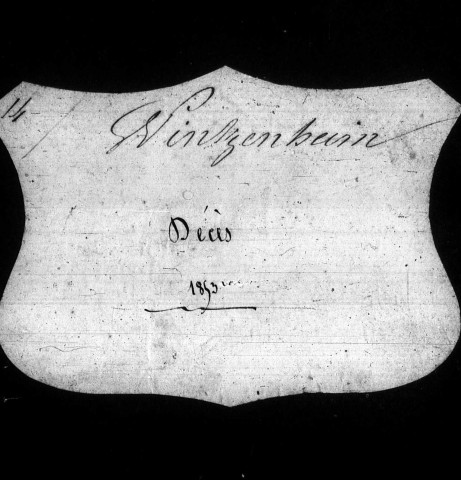 14
Wintzenheim
Décès
1853